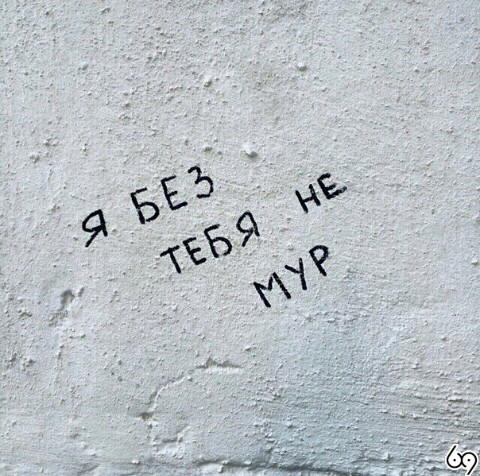 Я БЕЗ
ТЕБЯ НЕ
МУР
69